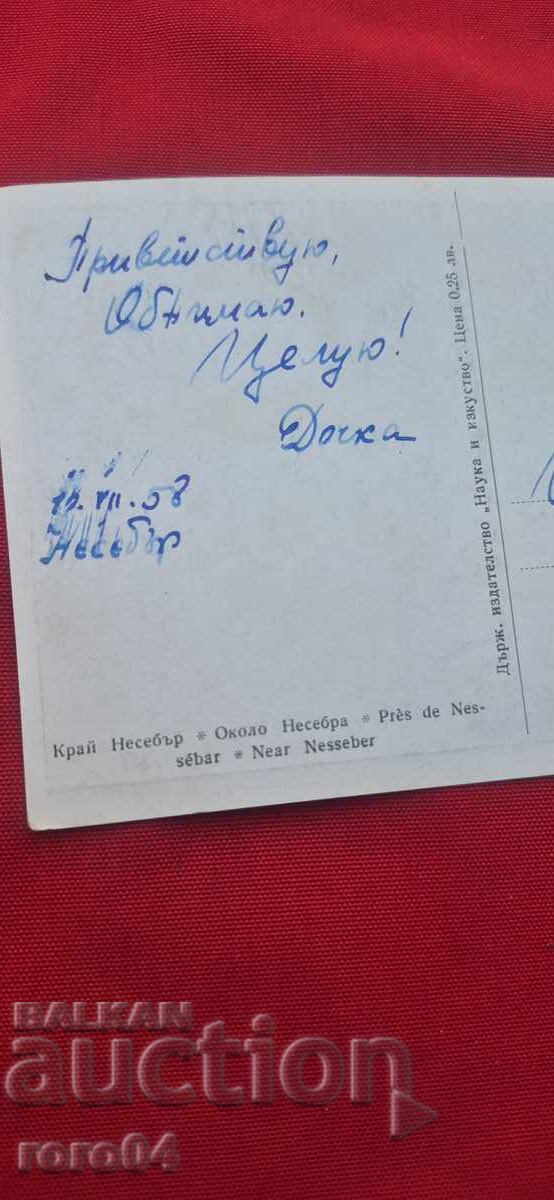 Приветствую,
Обнимаю.
Целую!
Дочка
15.VII.58
Несебър
Край Несебър * Около Несебра * Près de Nes-
sébar * Near Nesseber
Държ. издателство „Наука и изкуство“. Цена 0.25 лв.
BALKAN
auction
roro04